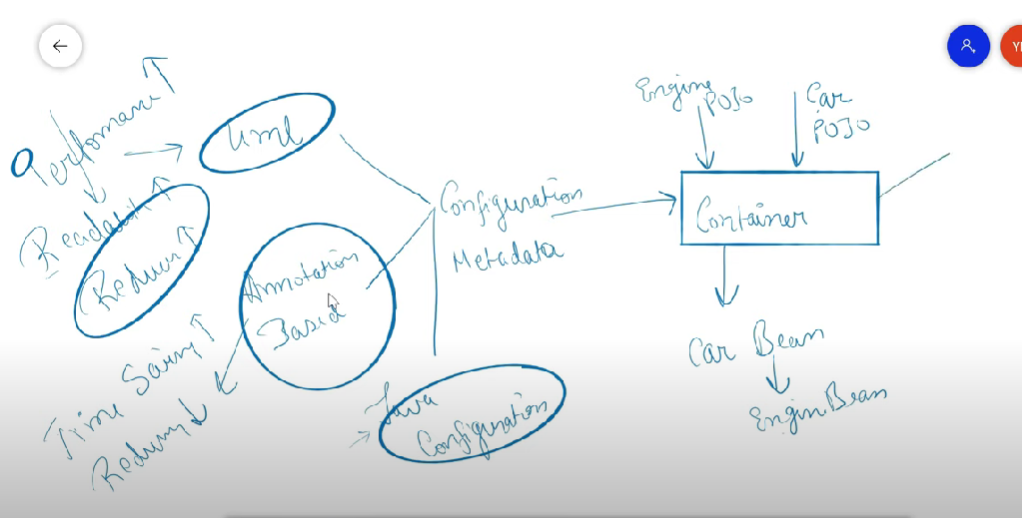 Performance ↑
Readabilit ↑
Xml
Annotation
Based
Time Saving ↑
Java
Configuration
Configuration
Metadata
Engine
POJO
Car
POJO
Container
Car Bean
EnginBean
YI